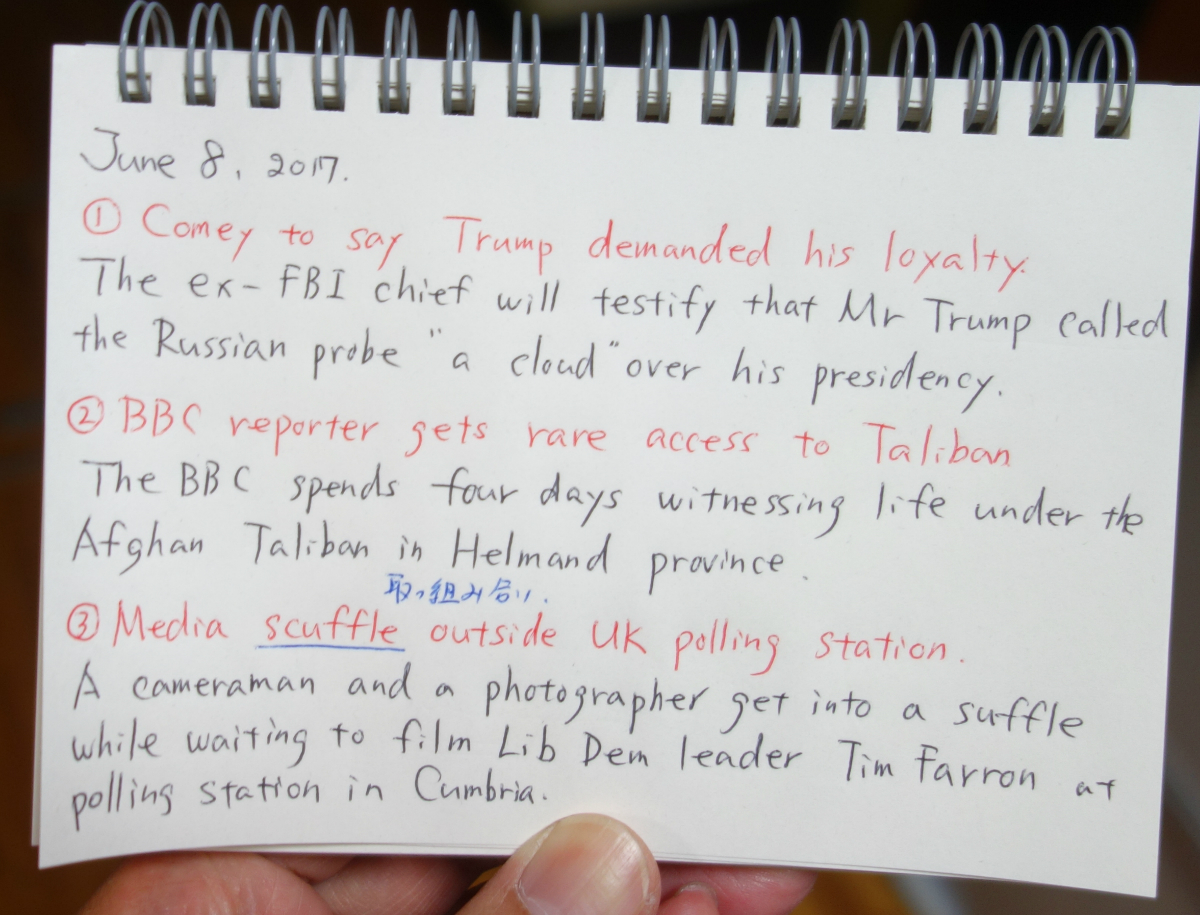 June 8, 2017.
① Comey to say Trump demanded his loyalty.
The ex-FBI chief will testify that Mr Trump called
the Russian probe "a cloud" over his presidency.
② BBC reporter gets rare access to Taliban
The BBC spends four days witnessing life under the
Afghan Taliban in Helmand province.
取っ組み合い.
③ Media scuffle outside UK polling station.
A cameraman and a photographer get into a suffle
while waiting to film Lib Dem leader Tim Farron at
polling station in Cumbria.